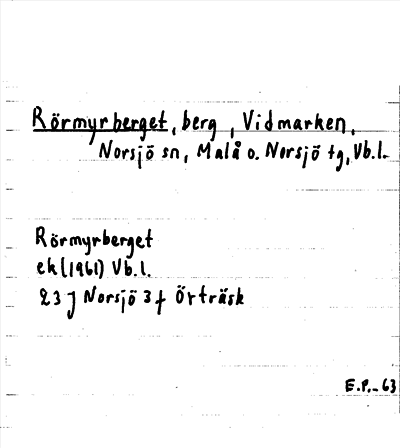 Rörmyrberget, berg, Vidmarken,
Norsjö sn, Malå o. Norsjö tg, Vb.l.
Rörmyrberget
ek(1961) Vb.l.
23 J Norsjö 3 f Örträsk
E.P.-63